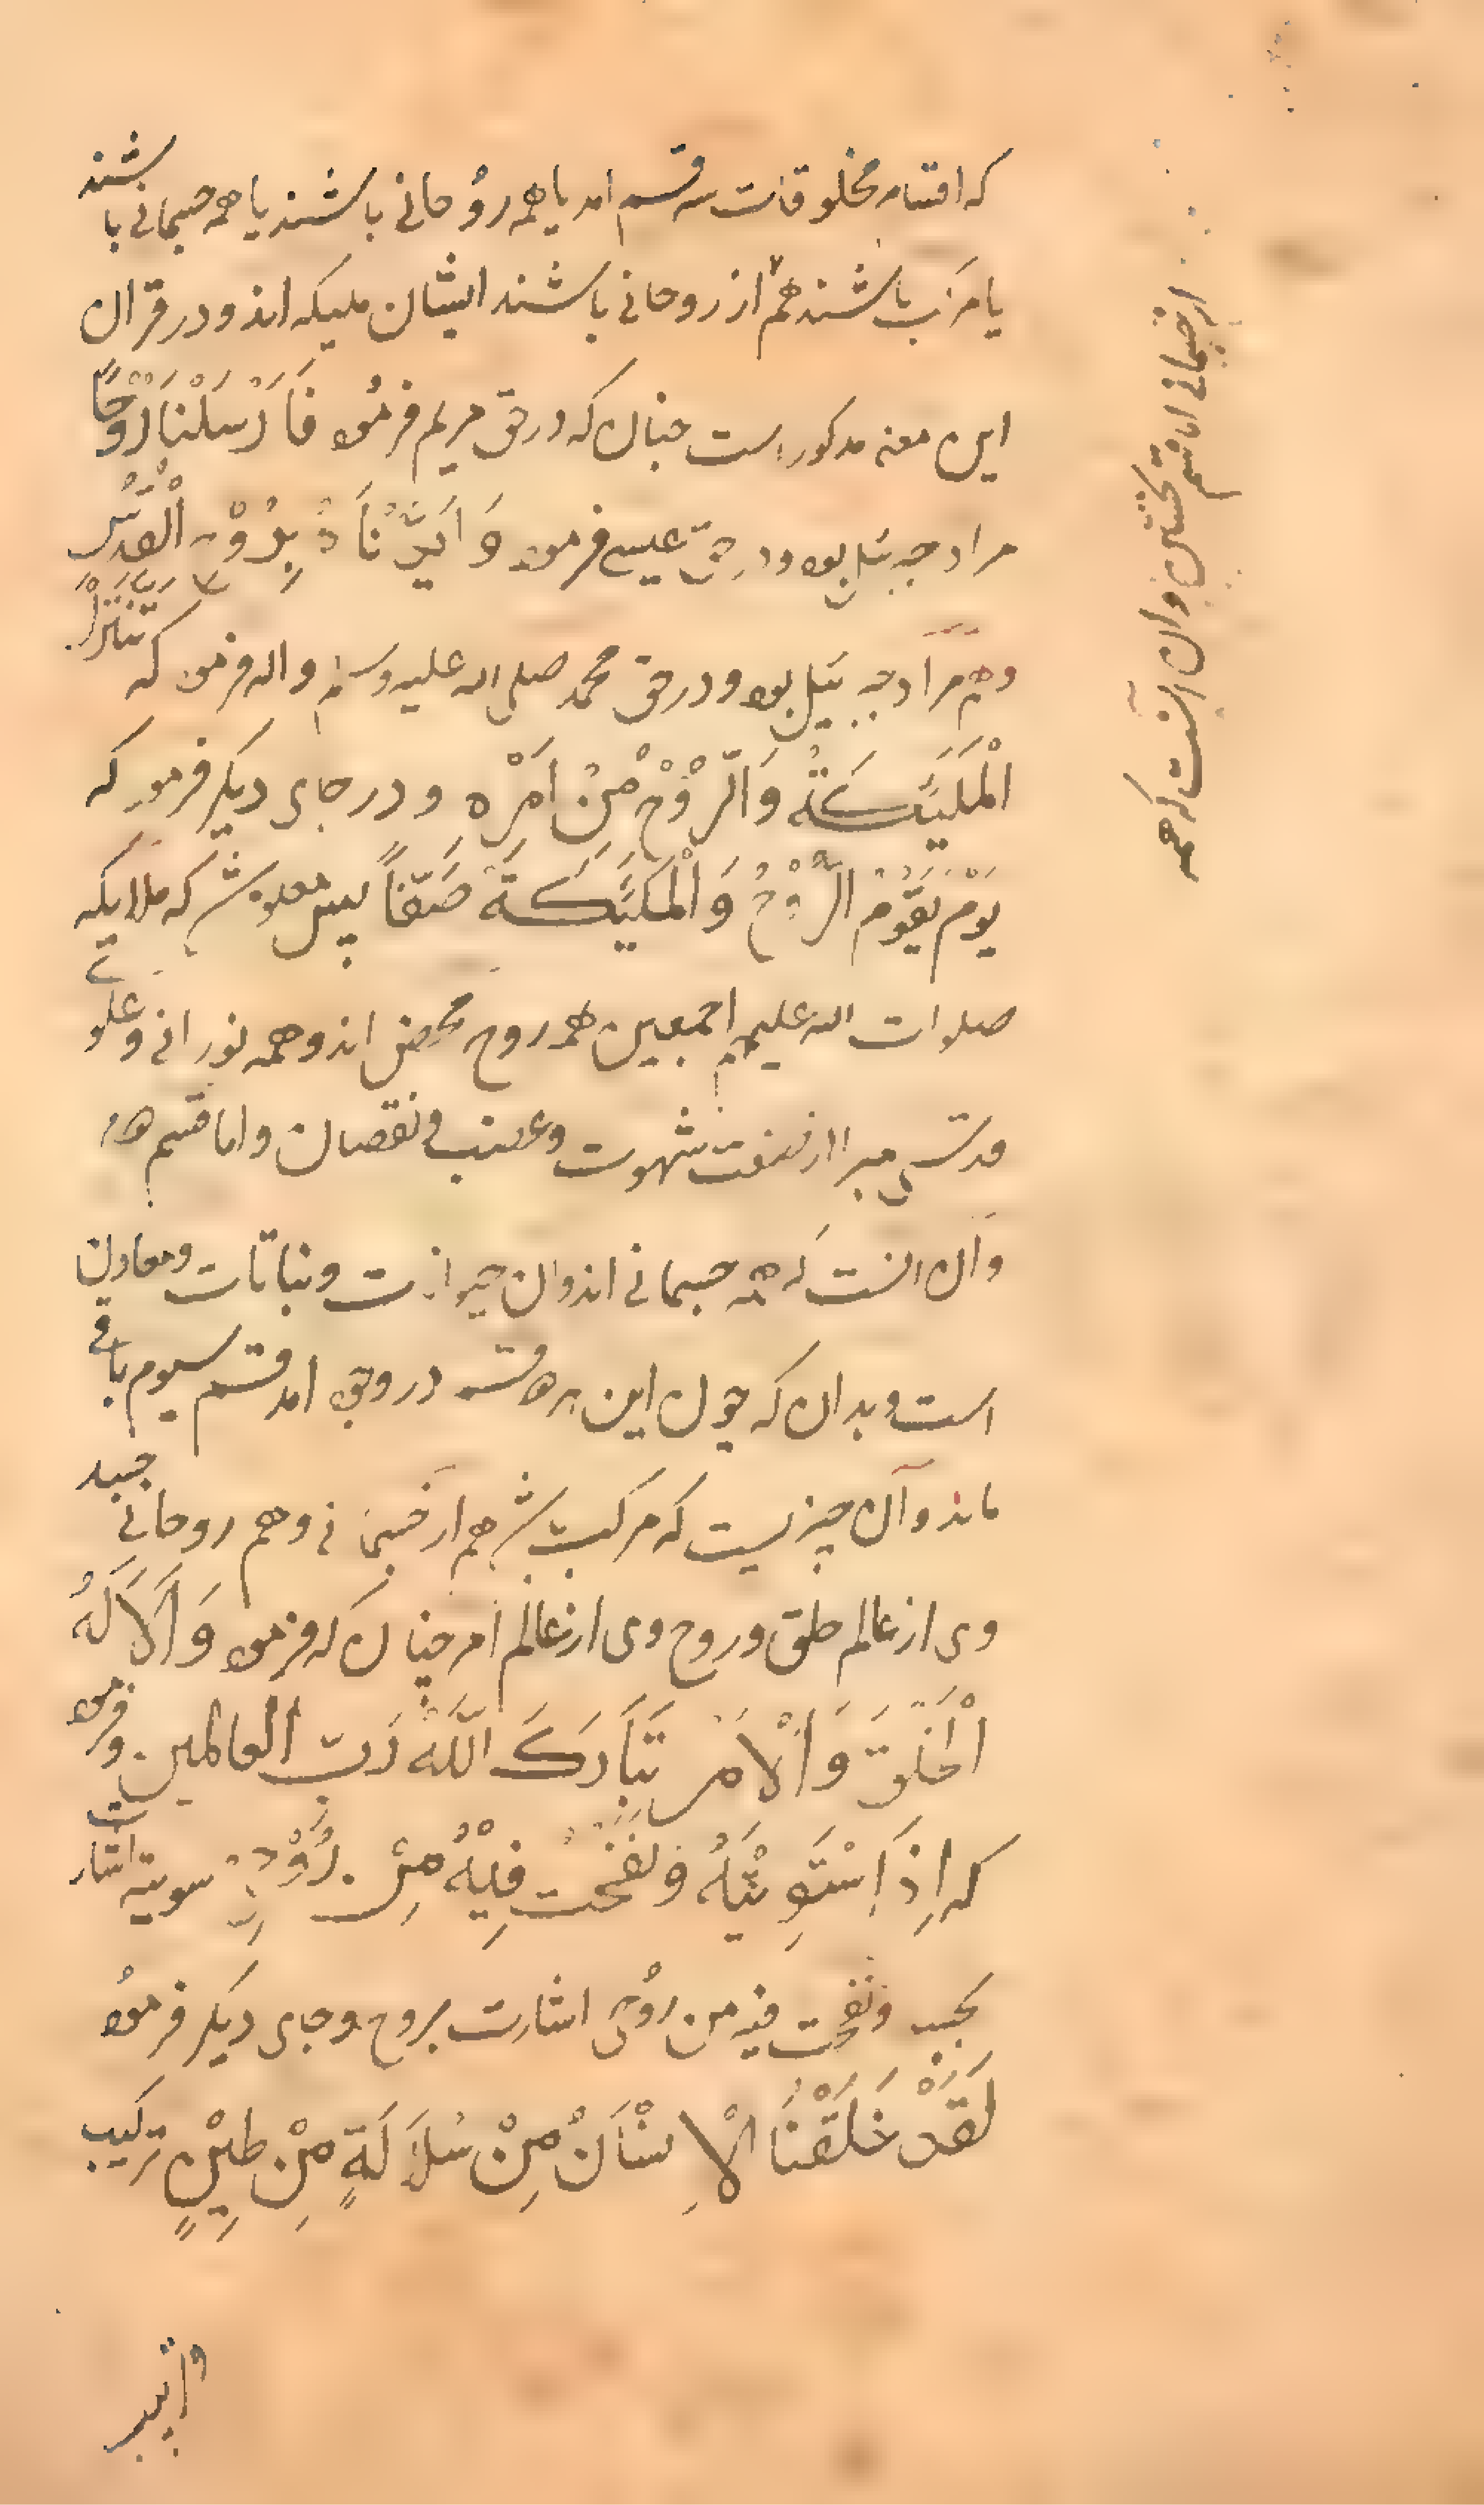 که اقسام مخلوقات سه قسم امد یا همه روحانی باشند یا همه جسمانی باشند
یا مرکب باشند هم از روحانی باشند ایشان ملیکه اند و در قران
این معنی مدکور است جنان که در حق مریم فرموده فَاَرْسَلْنَا رُوْحًا
مراد جبرئیل بوده و در حق عیسی فرموده وَ اَیَّدْنَاهُ بِرُوْحِ الْقُدُسِ
و هم مراد جبرئیل بوده و در حق محمد صلی الله علیه وسلم واله فرموده که تَنَزَّلُ
الْمَلَیِٕکَةُ وَالرُّوْحُ مِنْ اَمْرِه و در جای دیکر فرموده که
یَوْمَ یَقُوْمُ الرُّوْحُ وَالْمَلَیِٕکَةُ صَفّاً پس معلوم شد که ملایکه
صلوات الله علیهم اجمعین همه روح محض اند و همه نورانی و علوی
قدسی مبرا از صفت شهوت و غضب و نقصان و اما قسم دوم
و آن انست که همه جسمانی اند و ان حیوانات و نباتات و معادن
است و بدان که چون این دو قسم در وجود امد قسم سیوم باقی
ماند و آن چیزیست که مرکب باشد هم از جسمانی و هم روحانی جسد
وی از عالم خلق و روح وی از عالم امر جنان که فرموده وَ اَلَا لَهُ
الْخَلْقُ وَالْاَمْرُ تَبَارَكَ اللّٰهُ رَبُّ العالمین و فرموده
که اِذَا سْتَوِیْتَهُ وَ نَفَخْت فِیْهُ مِن رُوْحِی سویته اشارت
بجسد و نفخت فیه من رُوحی اشارت بروح و جای دیکر فرموده
لَقَدْ خَلَقْنَا الْاِنْسَانْ مِنْ سُلَالَةٍ مِنْ طِیْنٍ ترکیب
از جسمانی اما قسم
نخستین و ان انست که همه